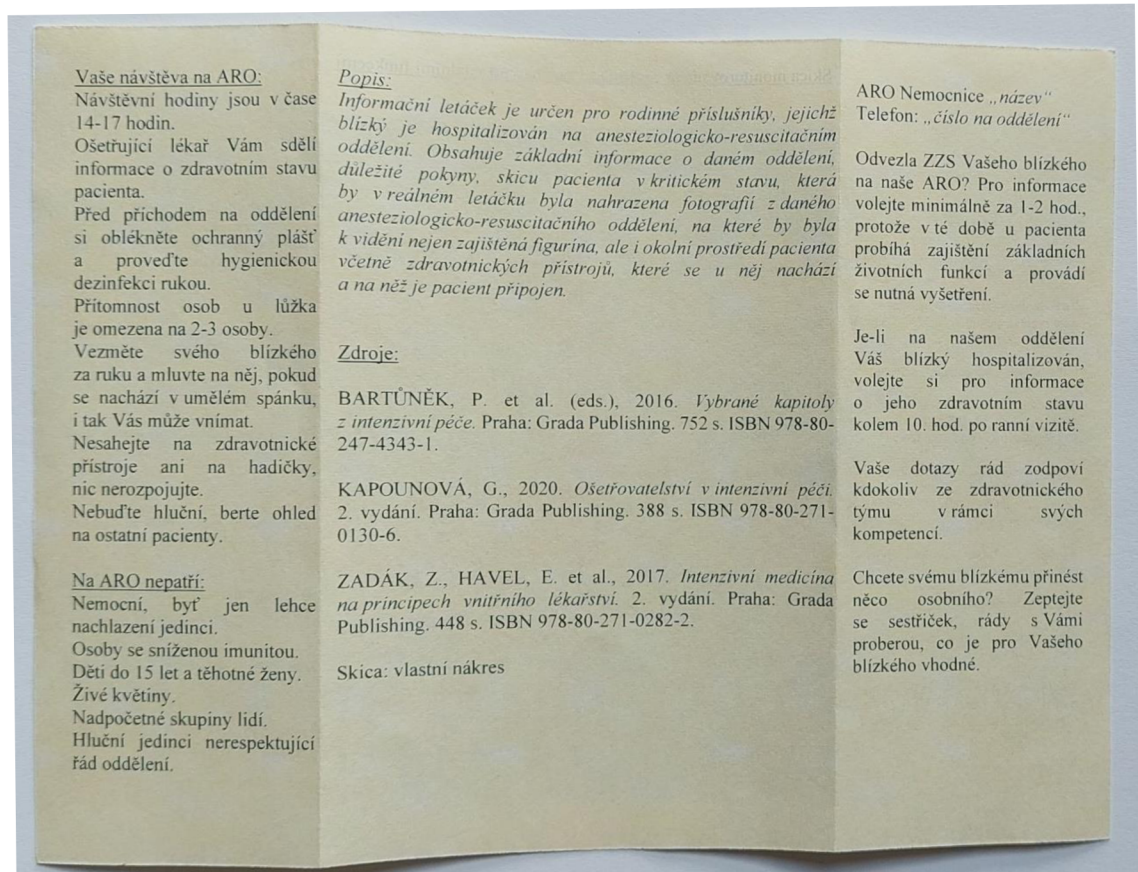 Vaše návštěva na ARO:
Návštěvní hodiny jsou v čase
14-17 hodin.
Ošetřující lékař Vám sdělí
informace o zdravotním stavu
pacienta.
Před příchodem na oddělení
si oblékněte ochranný plášť
a proveďte hygienickou
dezinfekci rukou.
Přítomnost osob u lůžka
je omezena na 2-3 osoby.
Vezměte svého blízkého
za ruku a mluvte na něj, pokud
se nachází v umělém spánku,
i tak Vás může vnímat.
Nesahejte na zdravotnické
přístroje ani na hadičky,
nic nerozpojujte.
Nebuďte hluční, berte ohled
na ostatní pacienty.
Na ARO nepatří:
Nemocní, byť jen lehce
nachlazení jedinci.
Osoby se sníženou imunitou.
Děti do 15 let a těhotné ženy.
Živé květiny.
Nadpočetné skupiny lidí.
Hluční jedinci nerespektující
řád oddělení.
Popis:
Informační letáček je určen pro rodinné příslušníky, jejichž
blízký je hospitalizován na anesteziologicko-resuscitačním
oddělení. Obsahuje základní informace o daném oddělení,
důležité pokyny, skicu pacienta v kritickém stavu, která
by v reálném letáčku byla nahrazena fotografií z daného
anesteziologicko-resuscitačního oddělení, na které by byla
k vidění nejen zajištěná figurína, ale i okolní prostředí pacienta
včetně zdravotnických přístrojů, které se u něj nachází
a na něž je pacient připojen.
Zdroje:
BARTŮNĚK, P. et al. (eds.), 2016. Vybrané kapitoly
z intenzivní péče. Praha: Grada Publishing. 752 s. ISBN 978-80-
247-4343-1.
KAPOUNOVÁ, G., 2020. Ošetřovatelství v intenzivní péči.
2. vydání. Praha: Grada Publishing. 388 s. ISBN 978-80-271-
0130-6.
ZADÁK, Z., HAVEL, E. et al., 2017. Intenzivní medicína
na principech vnitřního lékařství. 2. vydání. Praha: Grada
Publishing. 448 s. ISBN 978-80-271-0282-2.
Skica: vlastní nákres
ARO Nemocnice „název“
Telefon: „číslo na oddělení“
Odvezla ZZS Vašeho blízkého
na naše ARO? Pro informace
volejte minimálně za 1-2 hod.,
protože v té době u pacienta
probíhá zajištění základních
životních funkcí a provádí
se nutná vyšetření.
Je-li na našem oddělení
Váš blízký hospitalizován,
volejte si pro informace
o jeho zdravotním stavu
kolem 10. hod. po ranní vizitě.
Vaše dotazy rád zodpoví
kdokoliv ze zdravotnického
týmu v rámci svých
kompetencí.
Chcete svému blízkému přinést
něco osobního? Zeptejte
se sestřiček, rády s Vámi
proberou, co je pro Vašeho
blízkého vhodné.